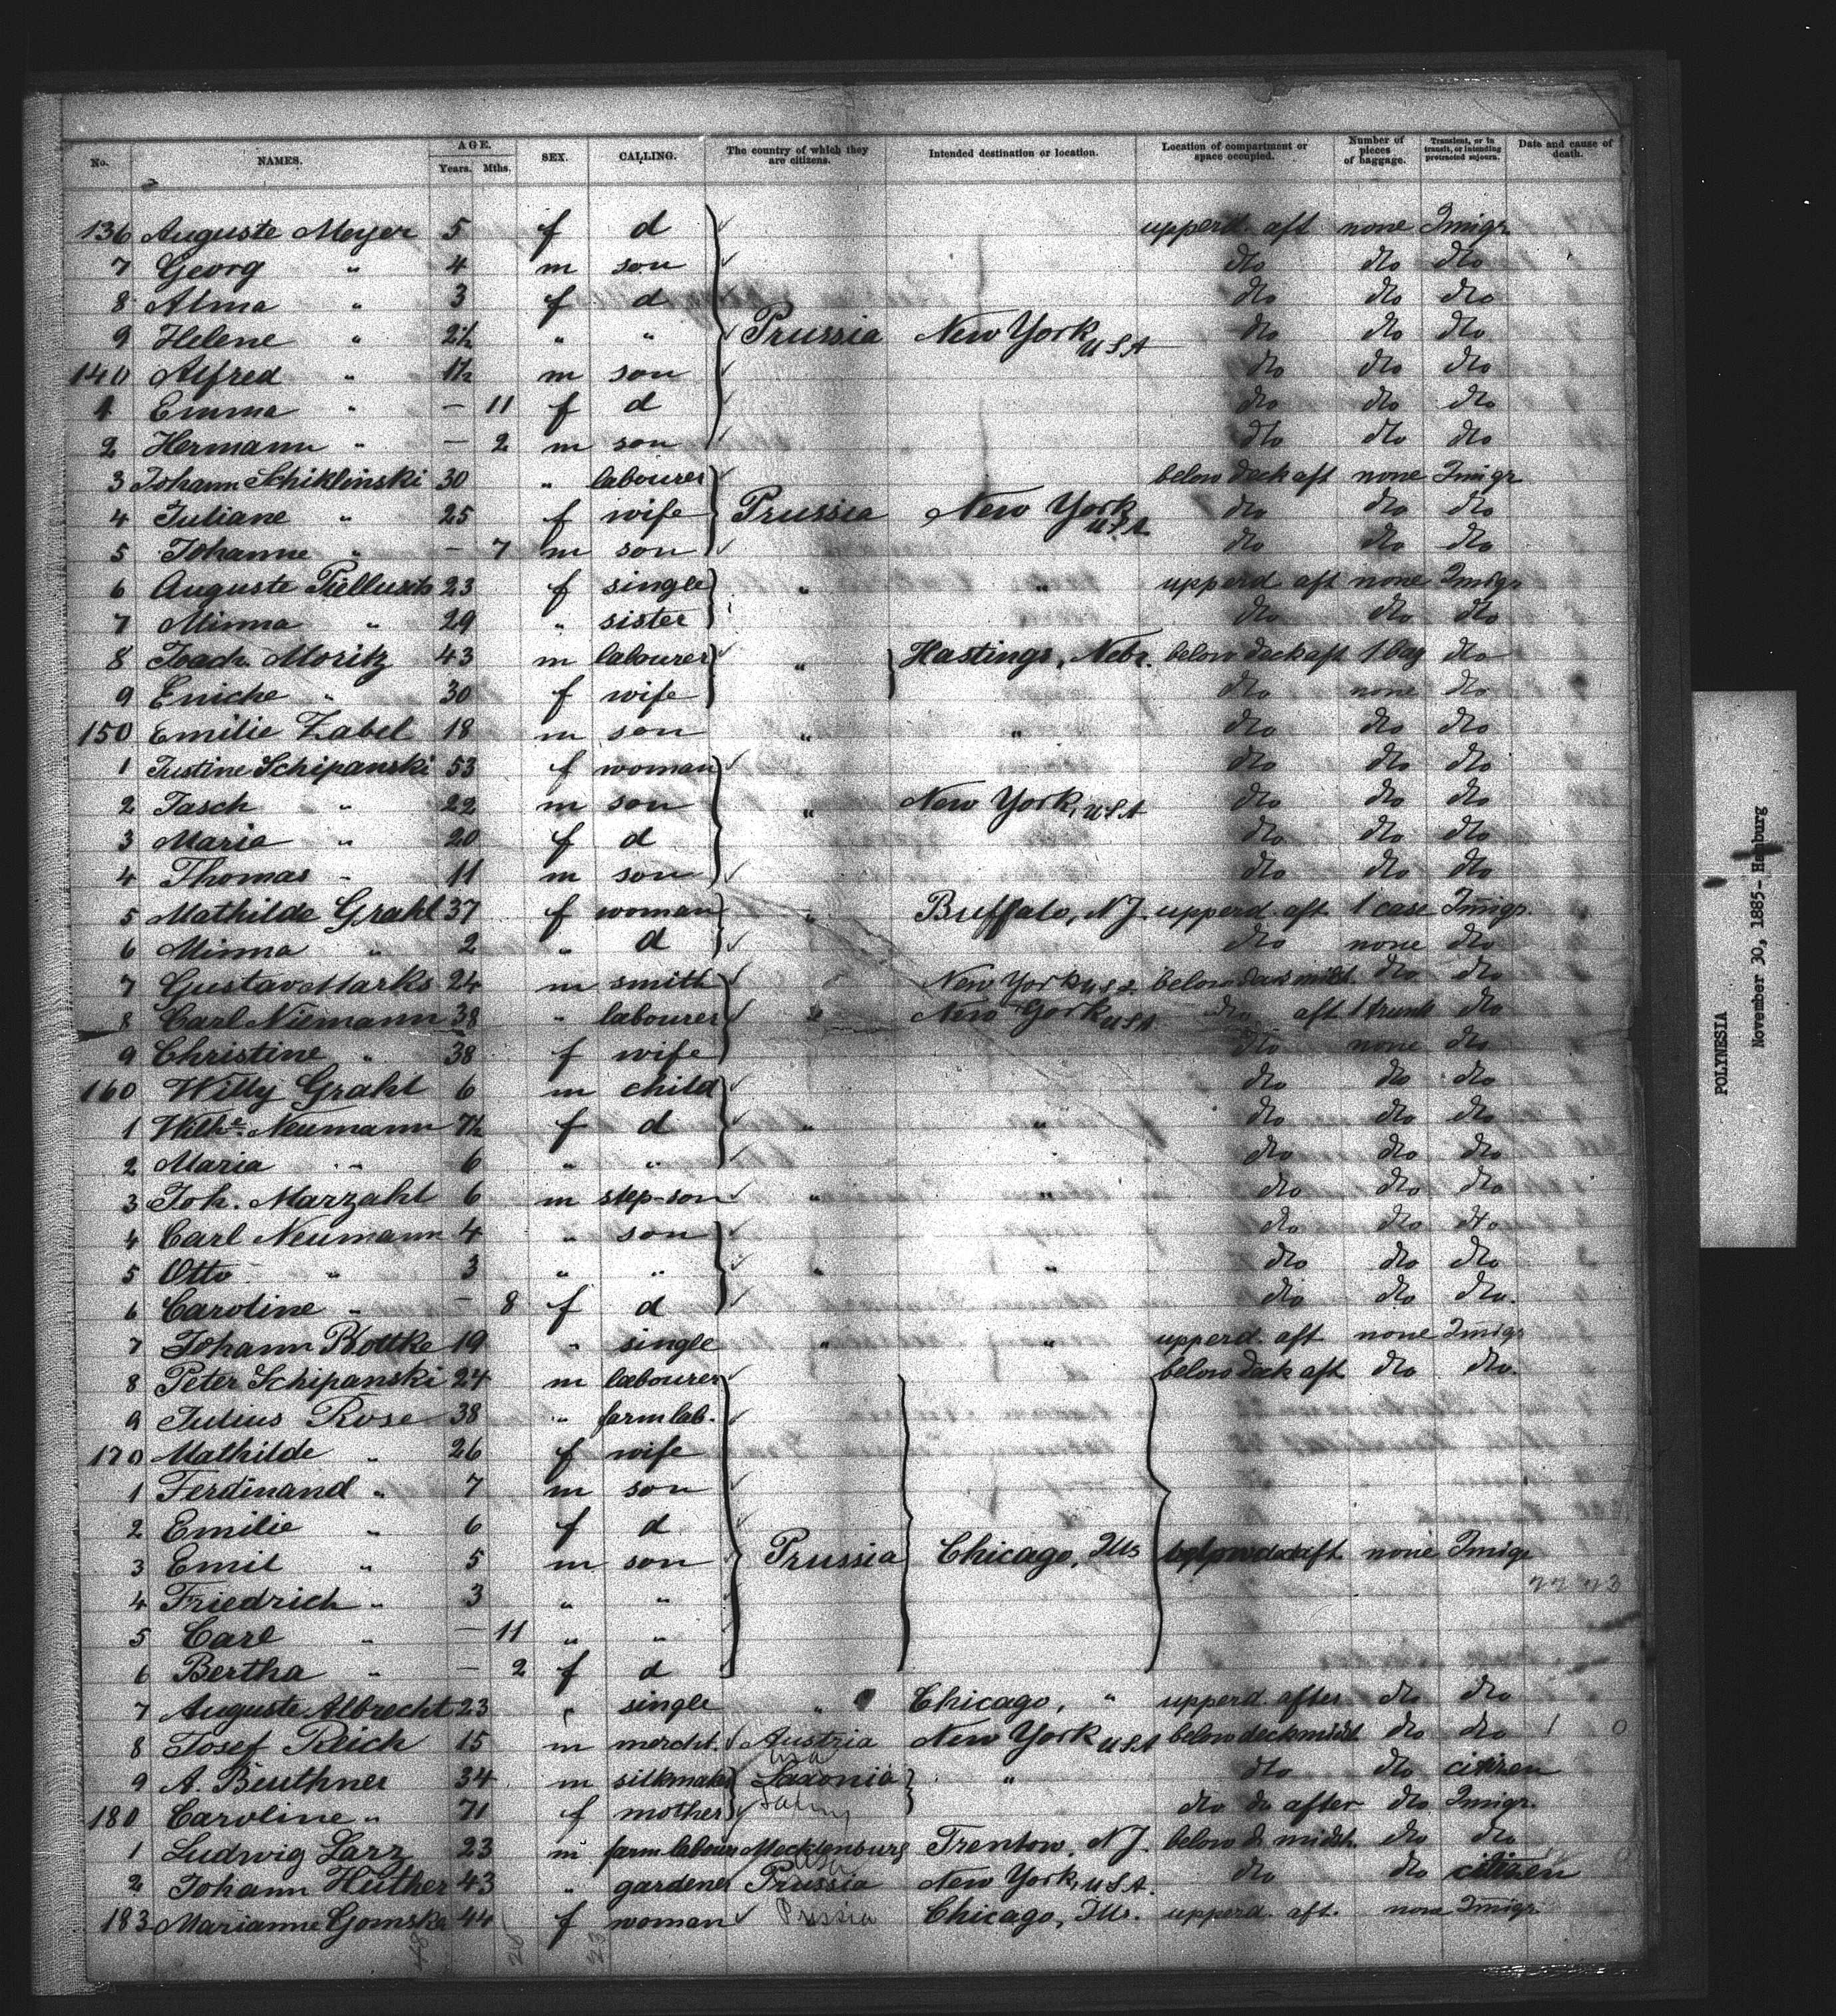 No. NAMES. AGE. Years. Mths. SEX. CALLING. The country of which they are citizens. Intended destination or location. Location of compartment or space occupied. Number of pieces of baggage. Transient, or in transit, or intending protracted sojourn. Date and cause of death.
136 Auguste Meyer 5 f d upperd. aft none Imigr.
7 Georg " 4 m son dto dto dto
8 Alma " 3 f d dto dto dto
9 Helene " 2½ " " Prussia New York USA dto dto dto
140 Alfred " 1½ m son dto dto dto
1 Emma " – 11 f d dto dto dto
2 Hermann " – 2 m son dto dto dto
3 Johann Schiklinski 30 " labourer below deck aft none Imigr
4 Juliane " 25 f wife Prussia New York USA dto dto dto
5 Johanne " – 7 m son dto dto dto
6 Auguste 23 f single " " upperd aft none Imigr
7 Minna " 29 " sister dto dto dto
8 Joach. Moritz 43 m labourer " Hastings, Nebr. below deck aft 1 bag dto
9 Eniche " 30 f wife dto none dto
150 Emilie Zabel 18 m son " " dto dto dto
1 Justine Schipanski 53 f woman dto dto dto
2 Jasch " 22 m son " New York, USA dto dto dto
3 Maria " 20 f d dto dto dto
4 Thomas " 11 m son dto dto dto
5 Mathilde Grahl 37 f woman " Buffalo, NJ. upperd. aft 1 case Imigr.
6 Minna " 2 " d dto none dto
7 Gustav Marks 24 m smith " New York USA below deck midsh. dto dto
8 Carl Niemann 38 " labourer " New York USA dto aft 1 trunk dto
9 Christine " 38 f wife dto none dto
160 Willy Grahl 6 m child dto dto dto
1 Wilhe. Neumann 7½ f d " " dto dto dto
2 Maria " 6 " " " dto dto dto
3 Joh. Marzahl 6 m step-son " " dto dto dto
4 Carl Neumann 4 " son dto dto dto
5 Otto " 3 " " " " dto dto dto
6 Caroline " – 8 f d dto dto dto.
7 Johann 19 " single " " upperd. aft none Imigr
8 Peter Schipanski 24 m labourer below deck aft dto dto.
9 Julius Rose 38 " farm lab.
170 Mathilde " 26 f wife
1 Ferdinand " 7 m son
2 Emilie " 6 f d
3 Emil " 5 m son Prussia Chicago, Ills below deck aft none Imigr
4 Friedrich " 3 " "
5 Carl " – 11 " "
6 Bertha " – 2 f d
7 Auguste Albrecht 23 " single " Chicago, " upperd. after dto dto
8 Josef Reich 15 m mercht. Austria New York USA below deck midsh. dto dto 1 0
9 A. Beuthner 34 m silkmaker Saxonia USA " dto dto citizen
180 Caroline " 71 f mother dto do after dto Imigr.
1 Ludwig Larz 23 m farm labour Mecklenburg Trenton, NJ. below d. midsh. dto dto
2 Johann Hüther 43 " gardener Prussia USA New York, USA. dto dto citizen
183 Marianne Gomska 44 f woman Prussia Chicago, Ills. upperd. aft. none Imigr.
POLYNESIA
November 30, 1885- Hamburg